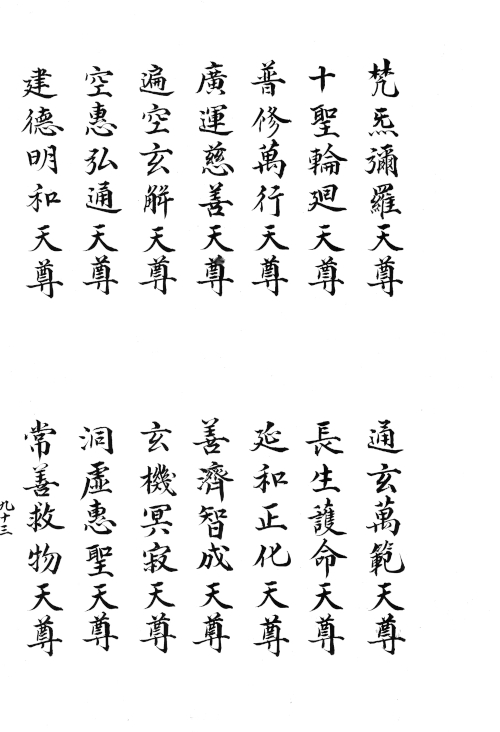 梵炁彌羅天尊
通玄萬範天尊
十聖輪廻天尊
長生護命天尊
普修萬行天尊
延和正化天尊
廣運慈善天尊
善濟智成天尊
遍空玄解天尊
玄機冥寂天尊
空惠弘通天尊
洞虛惠聖天尊
建德明和天尊
常善救物天尊
九十三